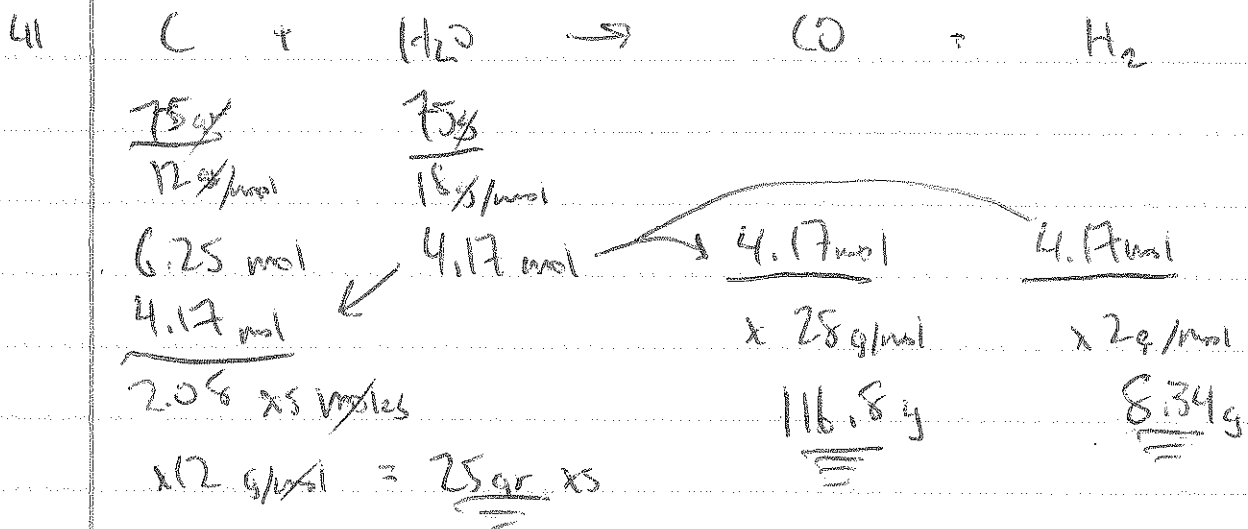 41 C + H₂O → CO + H₂
75 gr 75 g
12 gr/mol 18 g/mol
6.25 mol 4.17 mol 4.17 mol 4.17 mol
4.17 mol x 28 g/mol x 2g/mol
2.08 xs moles 116.8 g 8.34 g
x12 g/mol = 25 gr xs